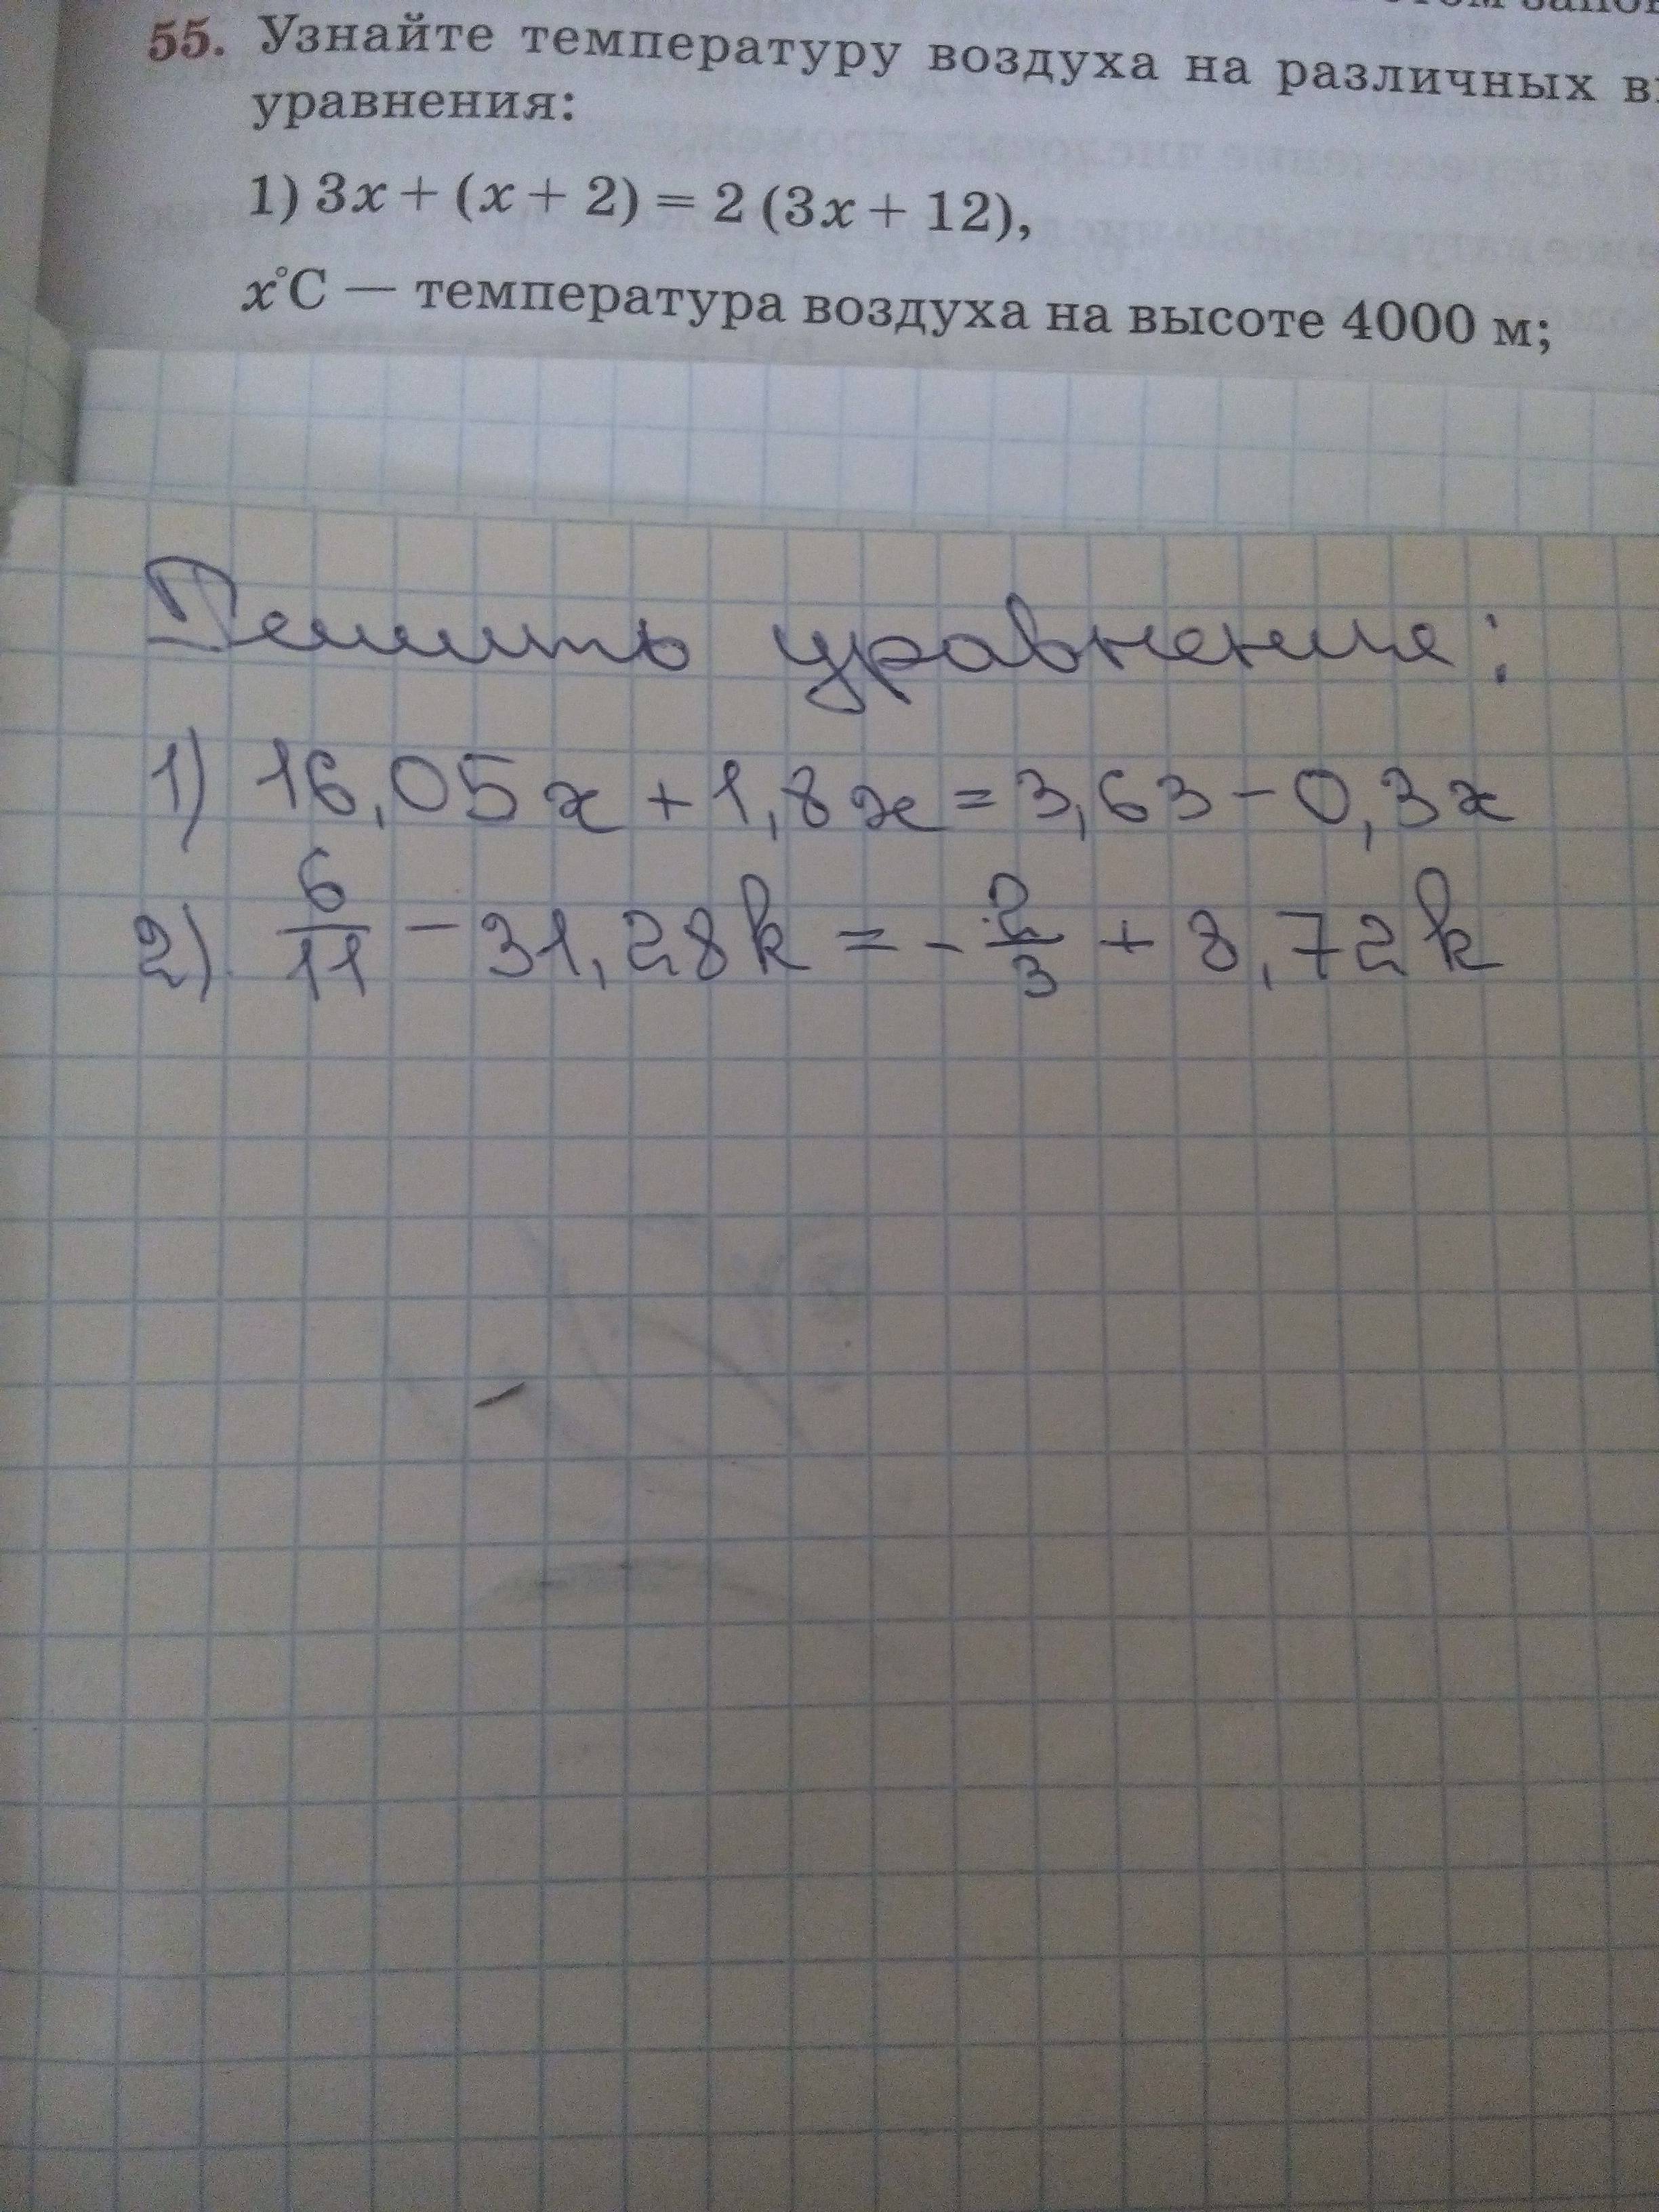 55. Узнайте температуру воздуха на различных
уравнения:
1) 3x + (x + 2) = 2 (3x + 12),
x°C — температура воздуха на высоте 4000 м;
Решить уравнение:
1) 16,05x + 1,8x = 3,63 - 0,3x
2) 6/11 - 31,28k = - 2/3 + 8,72k